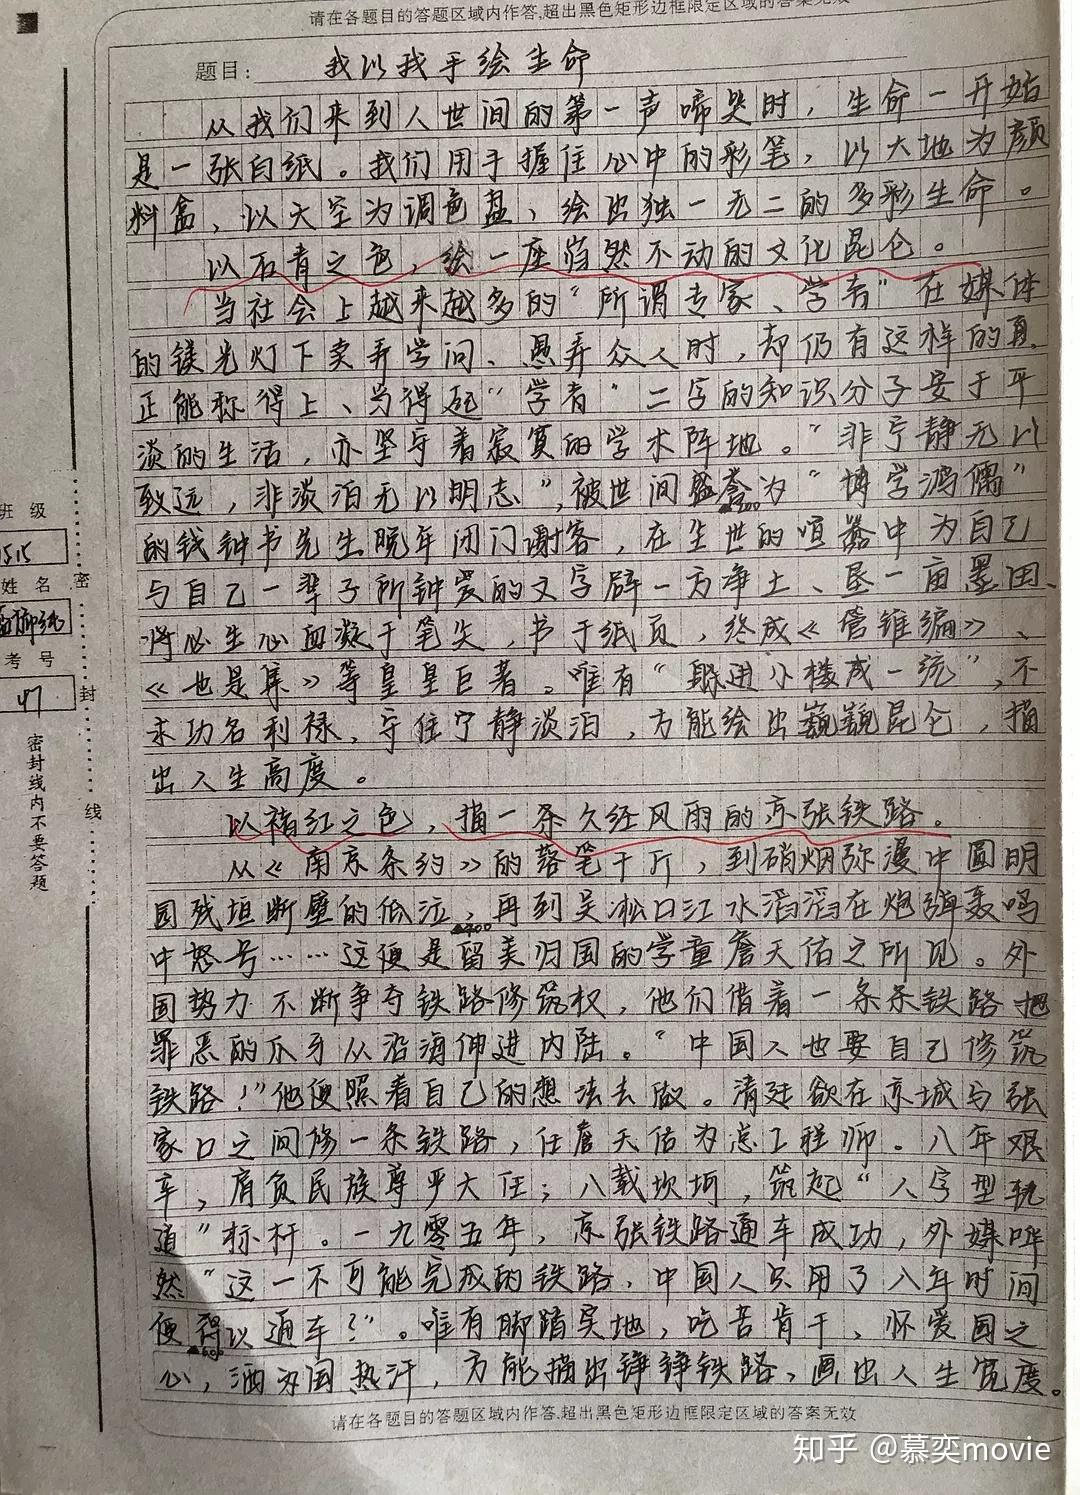 请在各题目的答题区域内作答,超出黑色矩形边框限定区域的答案无效
题目: 我以我手绘生命
从我们来到人世间的第一声啼哭时，生命一开始
是一张白纸。我们用手握住心中的彩笔，以大地为颜
料盒，以天空为调色盘，绘出独一无二的多彩生命。
以石青之色，绘一座岿然不动的文化昆仑。
当社会上越来越多的“所谓专家、学者”在媒体
的镁光灯下卖弄学问、愚弄众人时，却仍有这样的真
正能称得上、当得起“学者”二字的知识分子安于平
淡的生活，亦坚守着寂寞的学术阵地。“非宁静无以
致远，非淡泊无以明志”，被世间盛誉为“博学鸿儒”
的钱钟书先生晚年闭门谢客，在尘世的喧嚣中为自己
与自己一辈子所钟爱的文字辟一方净土、垦一亩墨田、
将必生心血凝于笔尖，书于纸页，终成《管锥编》、
《也是集》等皇皇巨著。唯有“躲进小楼成一统”，不
求功名利禄，守住宁静淡泊，方能绘出巍巍昆仑，描
出人生高度。
以褚红之色，描一条久经风雨的京张铁路。
从《南京条约》的落笔千斤，到硝烟弥漫中圆明
园残垣断壁的低泣，再到吴淞口江水滔滔在炮弹轰鸣
中怒号……这便是留美归国的学童詹天佑之所见。外
国势力不断争夺铁路修筑权，他们借着一条条铁路把
罪恶的爪牙从沿海伸进内陆。“中国人也要自己修筑
铁路！”他便照着自己的想法去做。清廷欲在京城与张
家口之间修一条铁路，任詹天佑为总工程师。八年艰
辛，肩负民族尊严大任；八载坎坷，筑起“人字型轨
道”标杆。一九零五年，京张铁路通车成功，外媒哗
然“这一不可能完成的铁路，中国人只用了八年时间
便得以通车？”。唯有脚踏实地，吃苦肯干，怀爱国之
心，洒为国热汗，方能描出铮铮铁路，画出人生宽度。
请在各题目的答题区域内作答,超出黑色矩形边框限定区域的答案无效
班级
1515
姓名
考号
47
密
封
线
密封线内不要答题
知乎 @慕奕movie